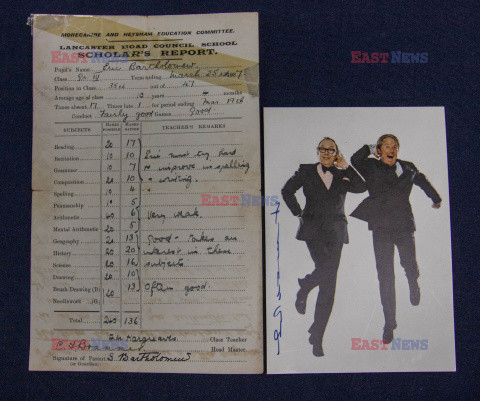 MORECAMBE AND HEYSHAM EDUCATION COMMITTEE.
LANCASTER ROAD COUNCIL SCHOOL
SCHOLAR'S REPORT.
Pupil's Name Eric Bartholomew
Class Term ending March 25
Position in Class out of
Average age of class years months
Times absent Times late for period ending
Conduct Fairly good Games Good
SUBJECTS MARKS POSSIBLE MARKS GAINED TEACHER'S REMARKS
Reading 20 17
Recitation 10 10 Eric must try hard
Grammar 10 7 to improve in spelling
Composition 20 10 " writing.
Spelling 10 4 "
Penmanship 10 5
Arithmetic 6 Very weak.
Mental Arithmetic 20 5
Geography 20 13 Good - Takes an
History 20 20 interest in these
Science 20 16 subjects.
Drawing 10
Brush Drawing (B) 13 Often good.
Needlework (G)
Total 240 136
Hargreaves Class Teacher
Head Master
Signature of Parent S. Bartholomew
or Guardian
EASTNEWS
EASTNEWS
EASTNEWS
EASTNEWS
EASTNEWS